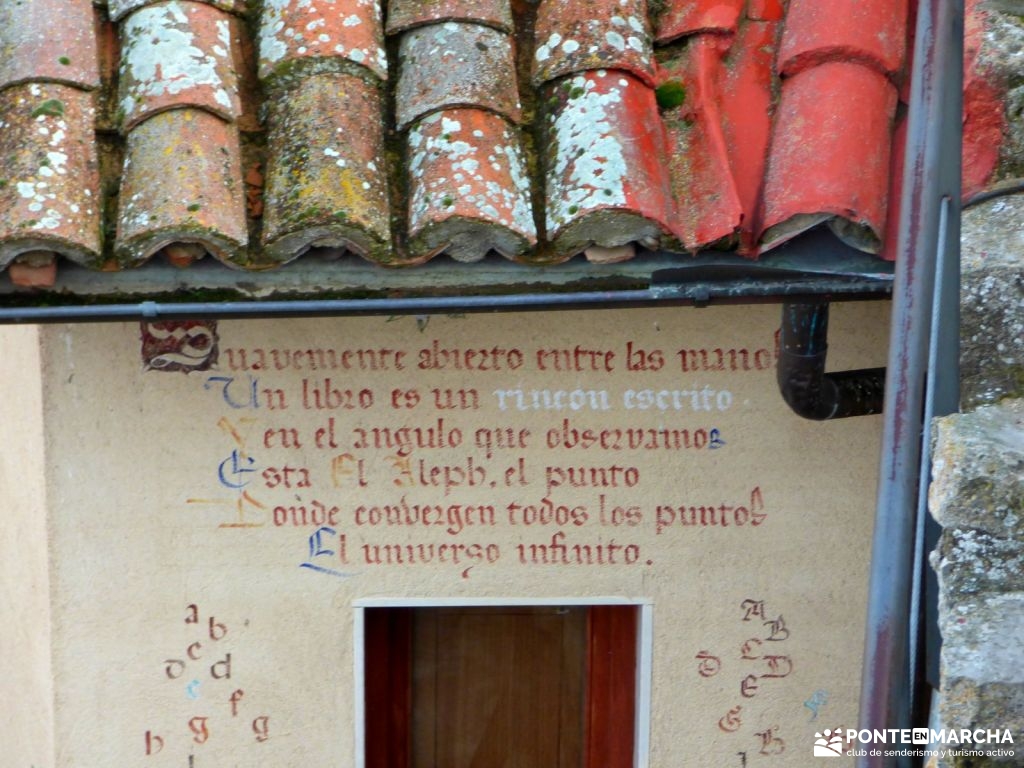 Suavemente abierto entre las manos
Un libro es un rincón escrito
Y en el angulo que observamos
Esta El Aleph, el punto
Donde convergen todos los puntos
El universo infinito.
a
b
c
d d
e
f
g g
h
A
B
C
D D
E
G
B
PONTE EN MARCHA
club de senderismo y turismo activo